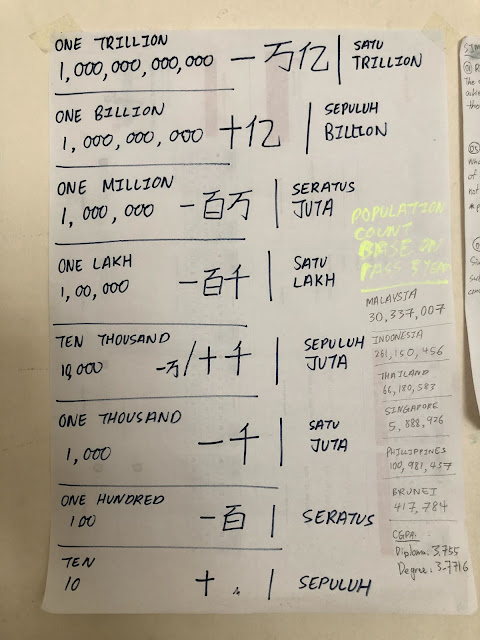 ONE TRILLION
1,000,000,000,000 一万亿 SATU TRILLION
ONE BILLION
1,000,000,000 十亿 SEPULUH BILLION
ONE MILLION
1,000,000 一百万 SERATUS JUTA
ONE LAKH
1,00,000 一百千 SATU LAKH
TEN THOUSAND
10,000 一万/十千 SEPULUH JUTA
ONE THOUSAND
1,000 一千 SATU JUTA
ONE HUNDRED
100 一百 SERATUS
TEN
10 十 SEPULUH
POPULATION
COUNT
BASE ON
PASS 5 YEAR
MALAYSIA
30,337,007
INDONESIA
261,150,456
THAILAND
66,180,583
SINGAPORE
5,888,926
PHILIPPINES
100,981,457
BRUNEI
417,784
CGPA:
Diploma: 3.755
Degree: 3.7716